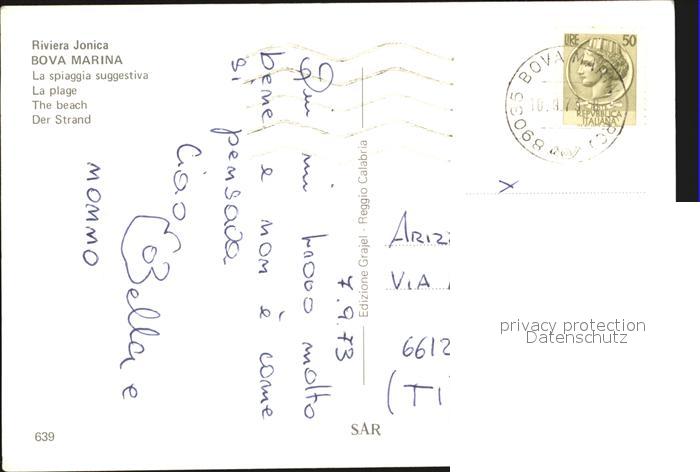 Riviera Jonica
BOVA MARINA
La spiaggia suggestiva
La plage
The beach
Der Strand
7.9.73
Qui mi trovo molto
bene e non è come
si pensava
Ciao Bella e
mommo
Edizione Grajel - Reggio Calabria
LIRE 50
REPVBBLICA
ITALIANA
89035 BOVA MARINA (RC)
X
ARIZ
VIA
6612
(TI
privacy protection
Datenschutz
639
SAR